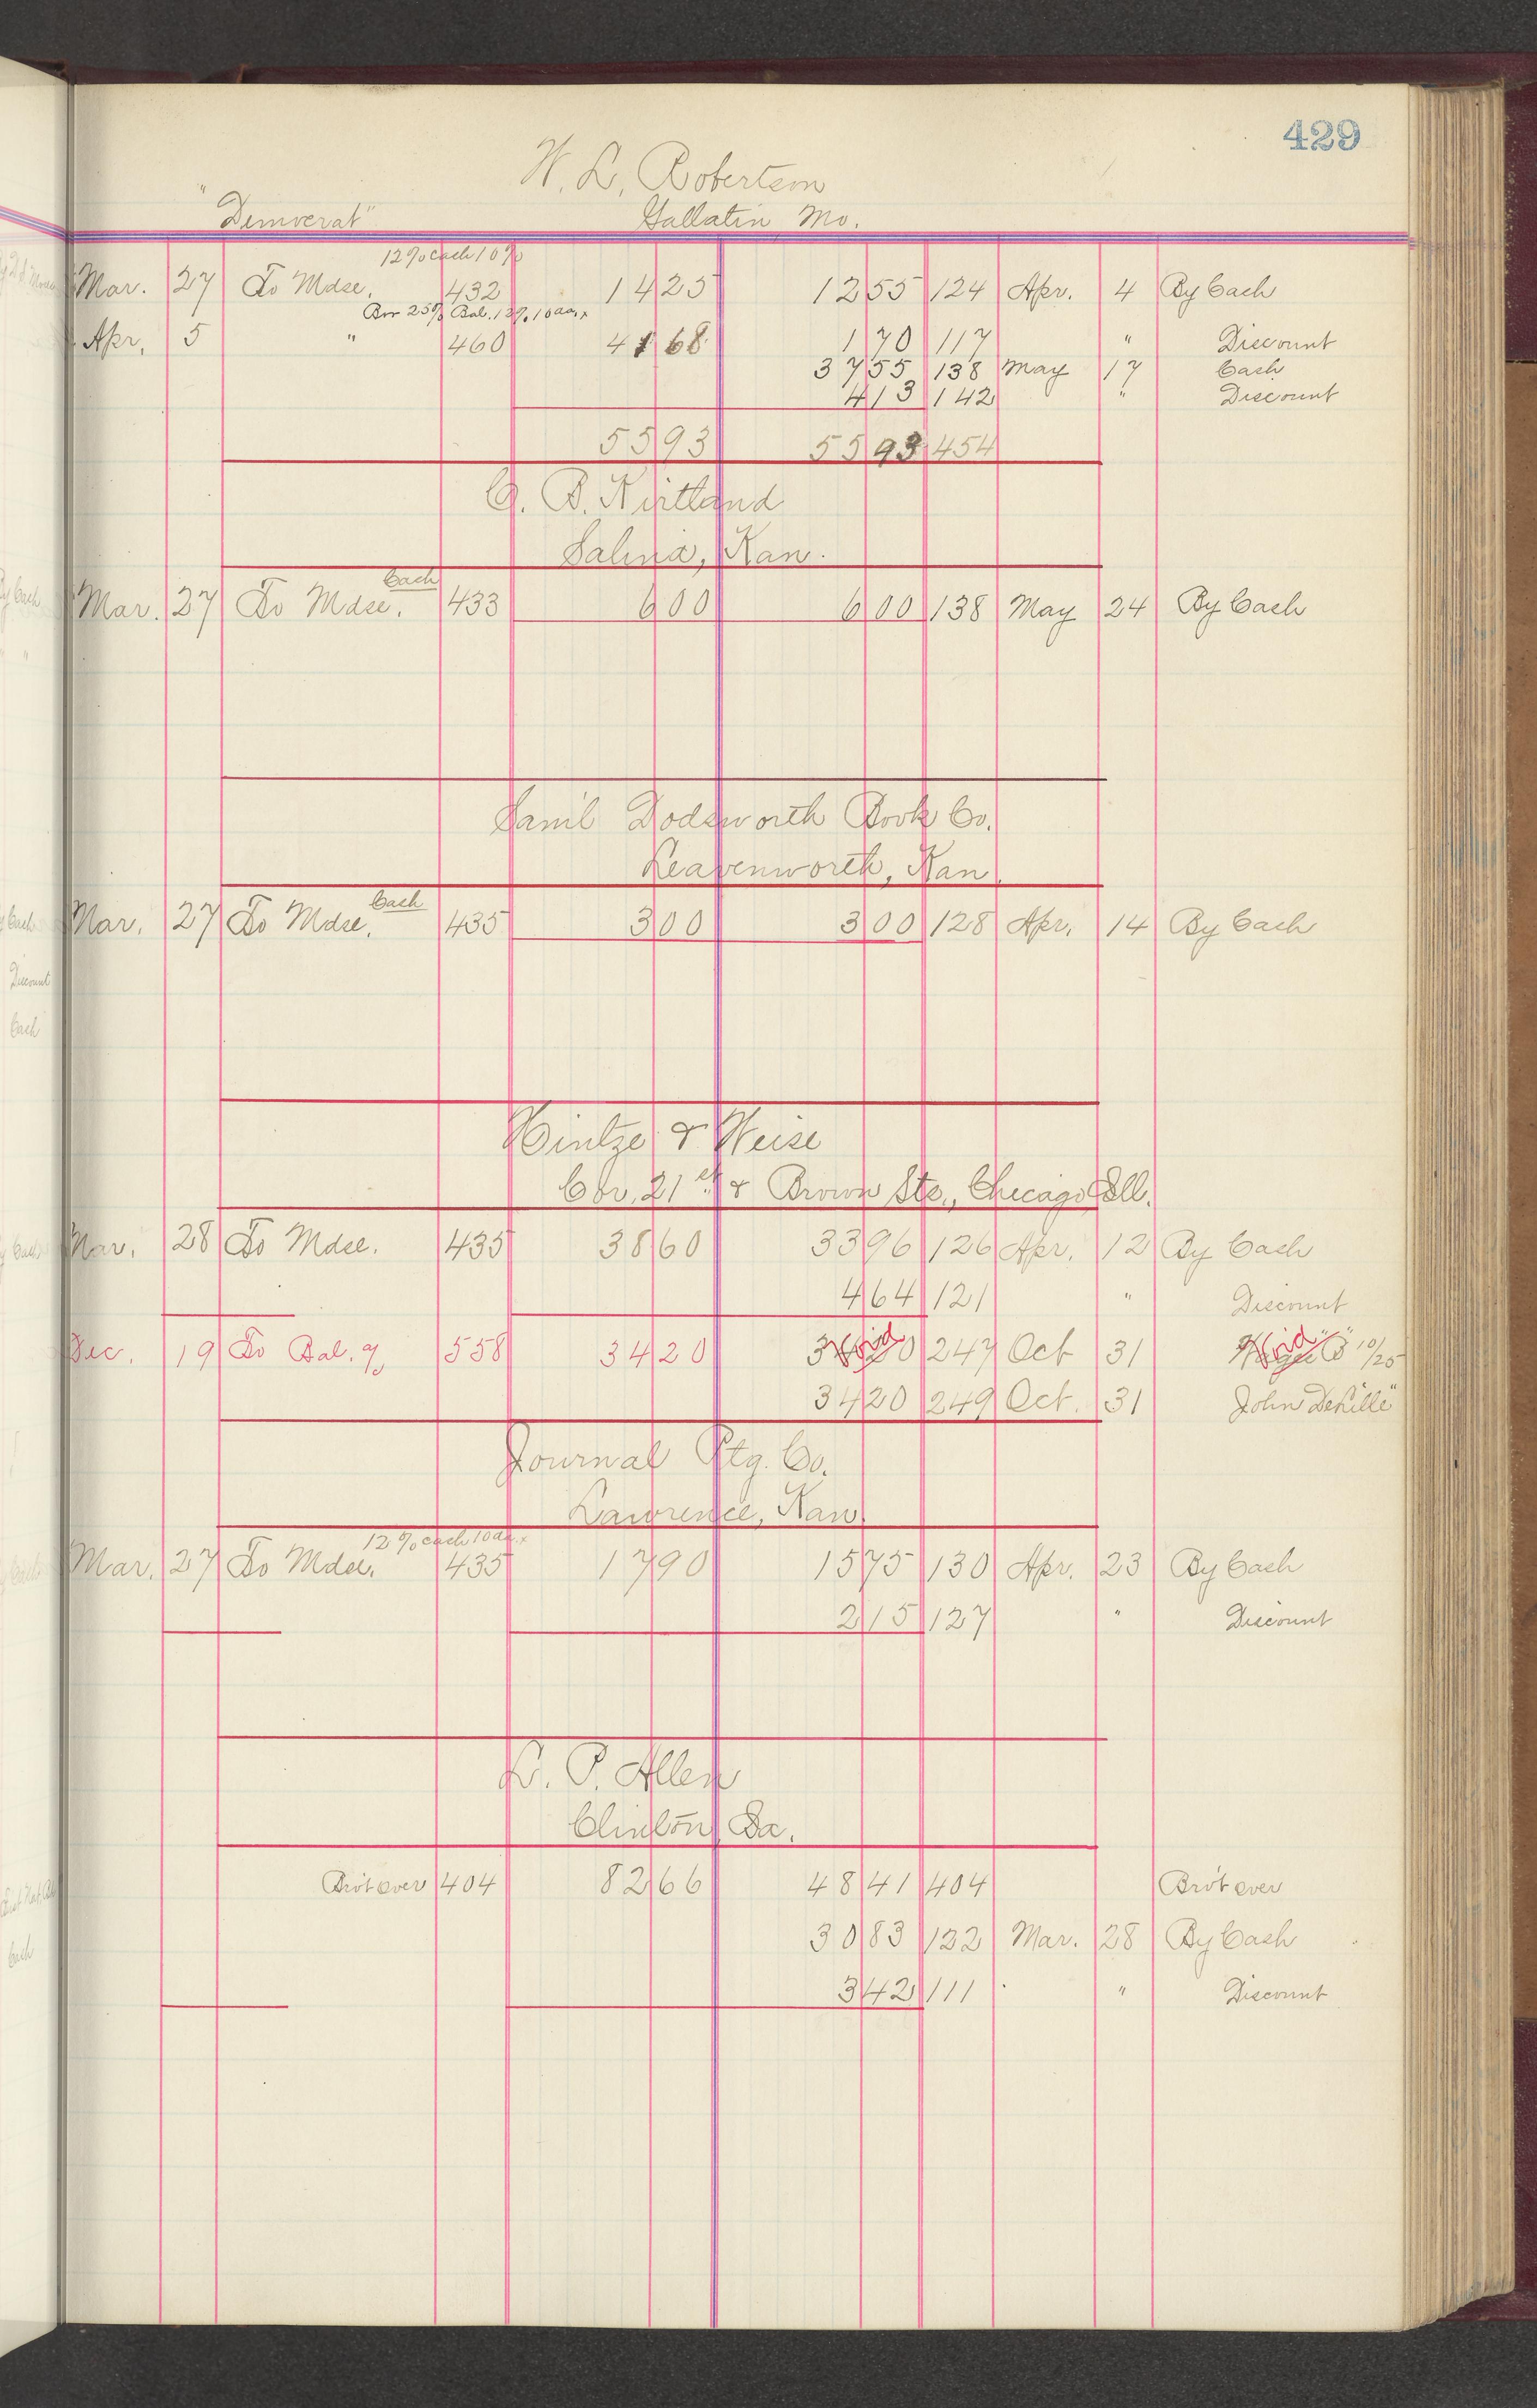 429
W. L. Robertson
"Democrat" Gallatin Mo.
12% cash 10%
Mar. 27 To Mdse. 432 14 25 12 55 124 Apr. 4 By Cash
Bor 25% Bal. 12% 10 da.x
Apr. 5 " 460 41 68 1 70 117 " Discount
37 55 138 May 17 Cash
4 13 142 " Discount
55 93 55 93 454
C. B. Kirtland
Salina, Kan.
Cash
Mar. 27 To Mdse. 433 6 00 6 00 138 May 24 By Cash
Sam'l Dodsworth Book Co.
Leavenworth, Kan.
Cash
Mar. 27 To Mdse. 435 3 00 3 00 128 Apr. 14 By Cash
Hintze & Weise
Cor. 21st & Brown Sts., Chicago Ill.
Mar. 28 To Mdse. 435 38 60 33 96 126 Apr. 12 By Cash
4 64 121 " Discount
Dec. 19 To Bal. 558 34 20 34 20 Void 247 Oct 31 Void 10/25
34 20 249 Oct. 31 John Deville"
Journal Ptg. Co.
Lawrence, Kan.
12% cash 10 da.x
Mar. 27 To Mdse. 435 17 90 15 75 130 Apr. 23 By Cash
2 15 127 " Discount
L. P. Allen
Clinton, Ia.
Bro't over 404 82 66 48 41 404 Bro't over
30 83 122 Mar. 28 By Cash
3 42 111 " Discount